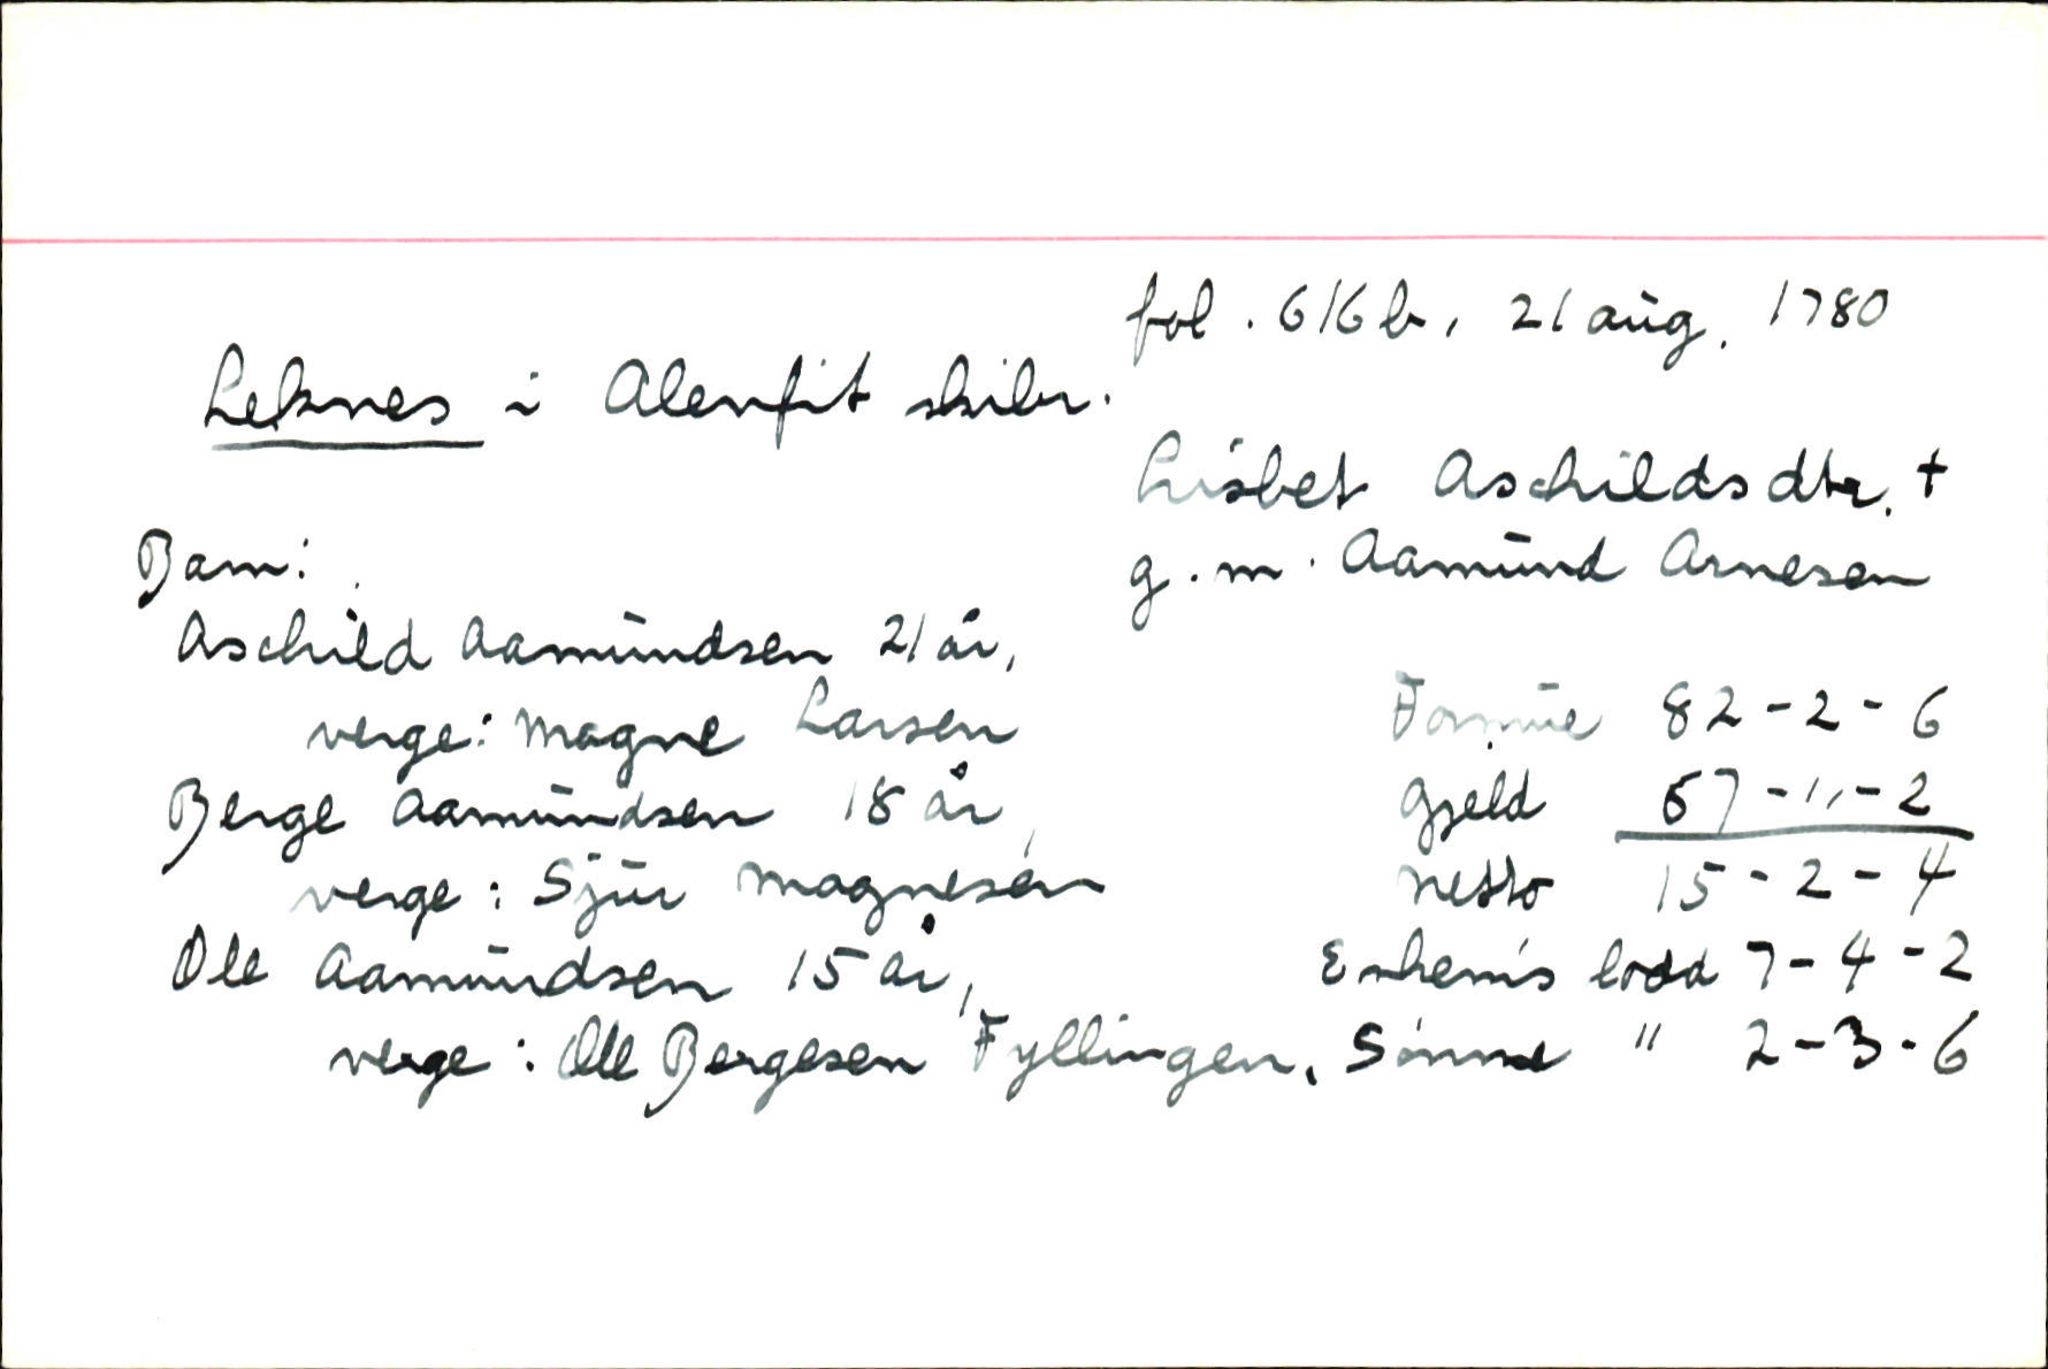 fol. 616 b, 21 aug. 1780
Leknes i Alenfit skibr.
Lisbet Aschildsdtr. +
g.m. Aamund Arnesen
Barn:
Aschild Aamundsen 21 år,
verge: Magne Larsen
Berge Aamundsen 18 år,
verge: Sjur Magnesen
Ole Aamundsen 15 år,
verge: Ole Bergesen Fyllingen.
Formue 82-2-6
Gjeld 67-"-2
Netto 15-2-4
Enkem's lodd 7-4-2
Sønne " 2-3-6